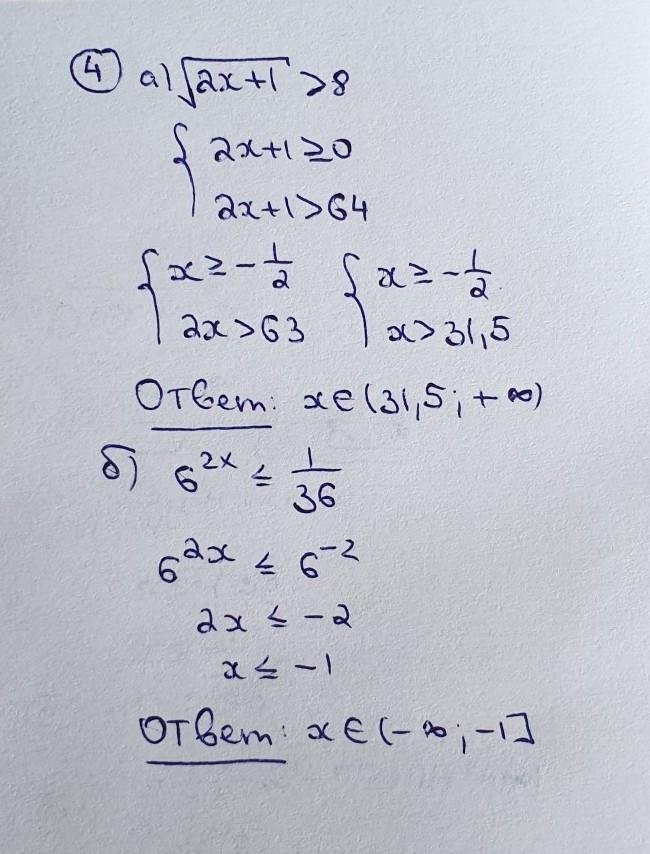 ④ а) √(2x+1) >8
{ 2x+1≥0
2x+1>64
{ x ≥ -1/2 { x ≥ -1/2
2x >63 x > 31,5
Ответ: x∈(31,5; +∞)
б) 6^2x ≤ 1/36
6^2x ≤ 6^-2
2x ≤ -2
x ≤ -1
Ответ: x∈(-∞; -1]